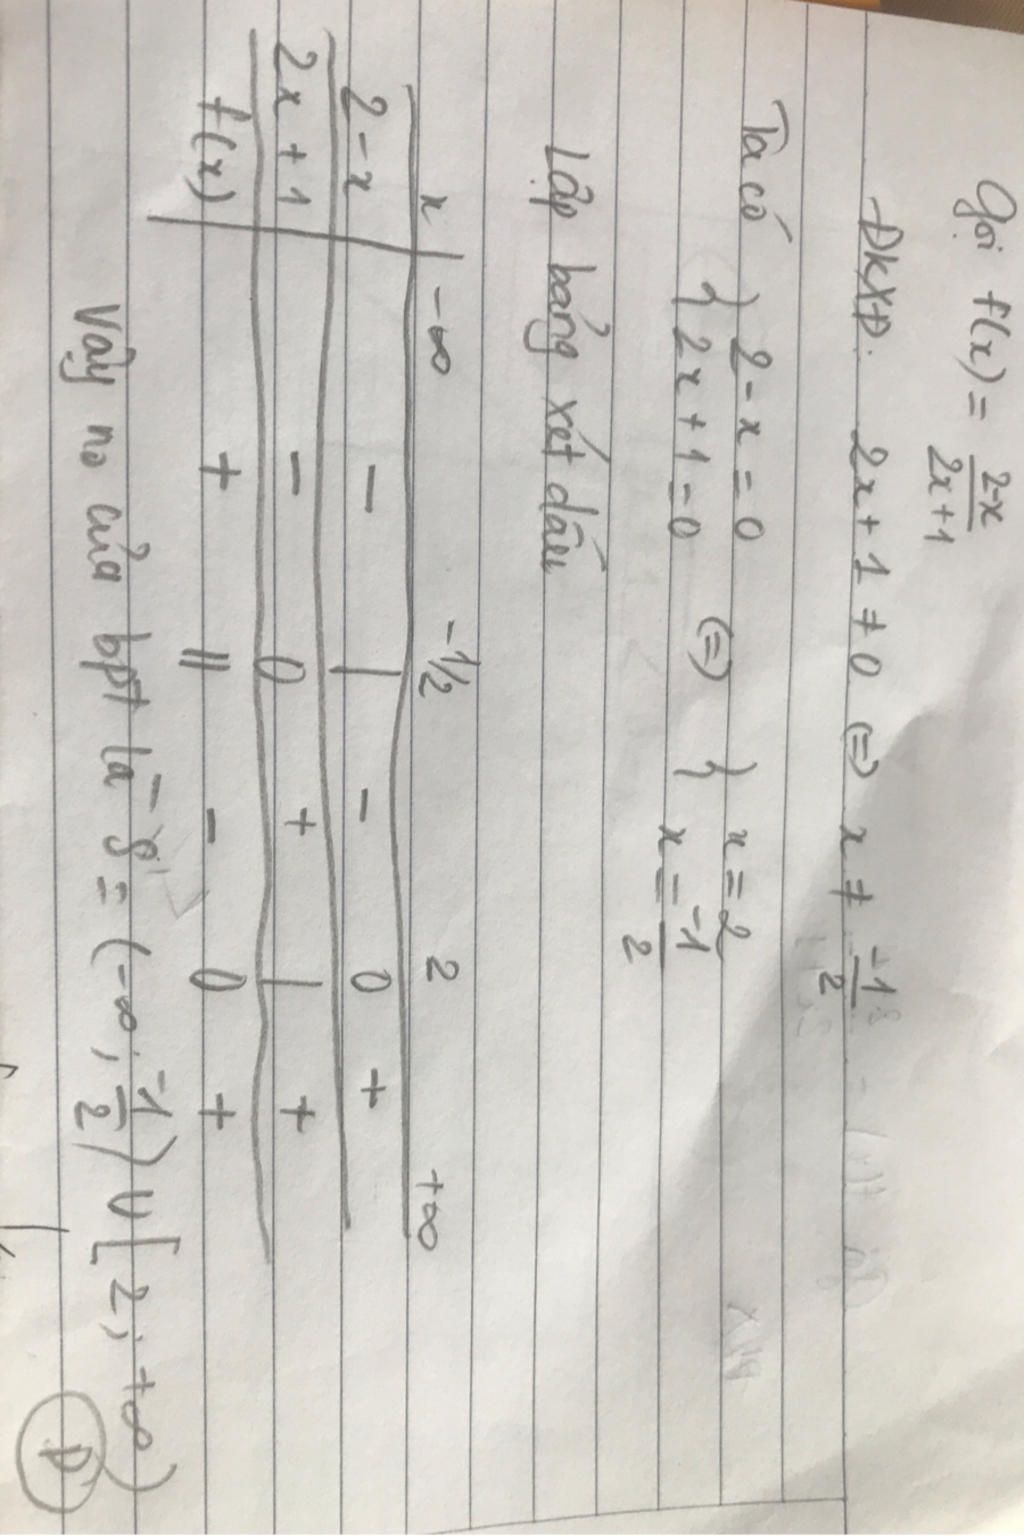 Gọi f(x) = \frac{2-x}{2x+1}
ĐKXĐ: 2x + 1 ≠ 0 (=) x ≠ \frac{-1}{2}
Ta có { 2 - x = 0 (=) { x = 2
2x + 1 = 0 x = \frac{-1}{2}
Lập bảng xét dấu
x | -∞ -1/2 2 +∞
2 - x | - | - 0 +
2x + 1 | - 0 + | +
f(x) | + || - 0 +
Vậy no của bpt là S = (-∞; \frac{-1}{2}) ∪ [2; +∞)
D